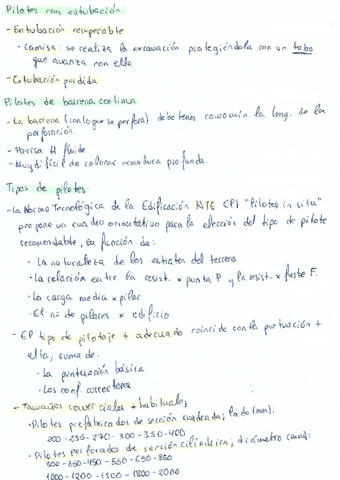 Pilotes con entubación
- Entubación recuperable
· Camisa: se realiza la excavación protegiéndola con un tubo
que avanza con ella
- Entubación perdida
Pilotes de barrena continua
- La barrena (con lo que se perfora) debe tener como mín. la long. de la
perforación.
- Precisa H fluido
- Muy difícil de colocar armadura profunda.
Tipos de pilotes
- La Norma Tecnológica de la Edificación NTE CPI "Pilotes in situ"
propone un cuadro orientativo para la elección del tipo de pilote
recomendable, en función de:
· La naturaleza de los estratos del terreno
· La relación entre la resist. x punta P y la resist. x fuste F.
· La carga media x pilar
· El nº de pilares x edificio
- El tipo de pilotaje + adecuado coincide con la puntuación +
alta, suma de:
· La puntuación básica
· Los coef. correctores
- Tamaños comerciales + habituales;
· Pilotes prefabricados de sección cuadrada; lado (mm):
200 - 235 - 270 - 300 - 350 - 400
· Pilotes perforados de sección cilíndrica; diámetro (mm):
300 - 350 - 450 - 550 - 650 - 850
1000 - 1200 - 1500 - 1800 - 2000